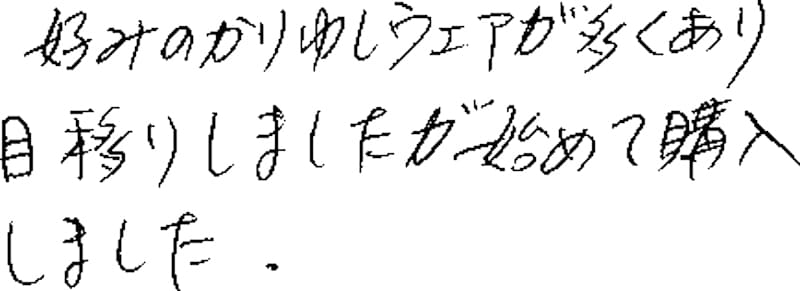 好みのかりゆしウェアが多くあり
目移りしましたが始めて購入
しました.